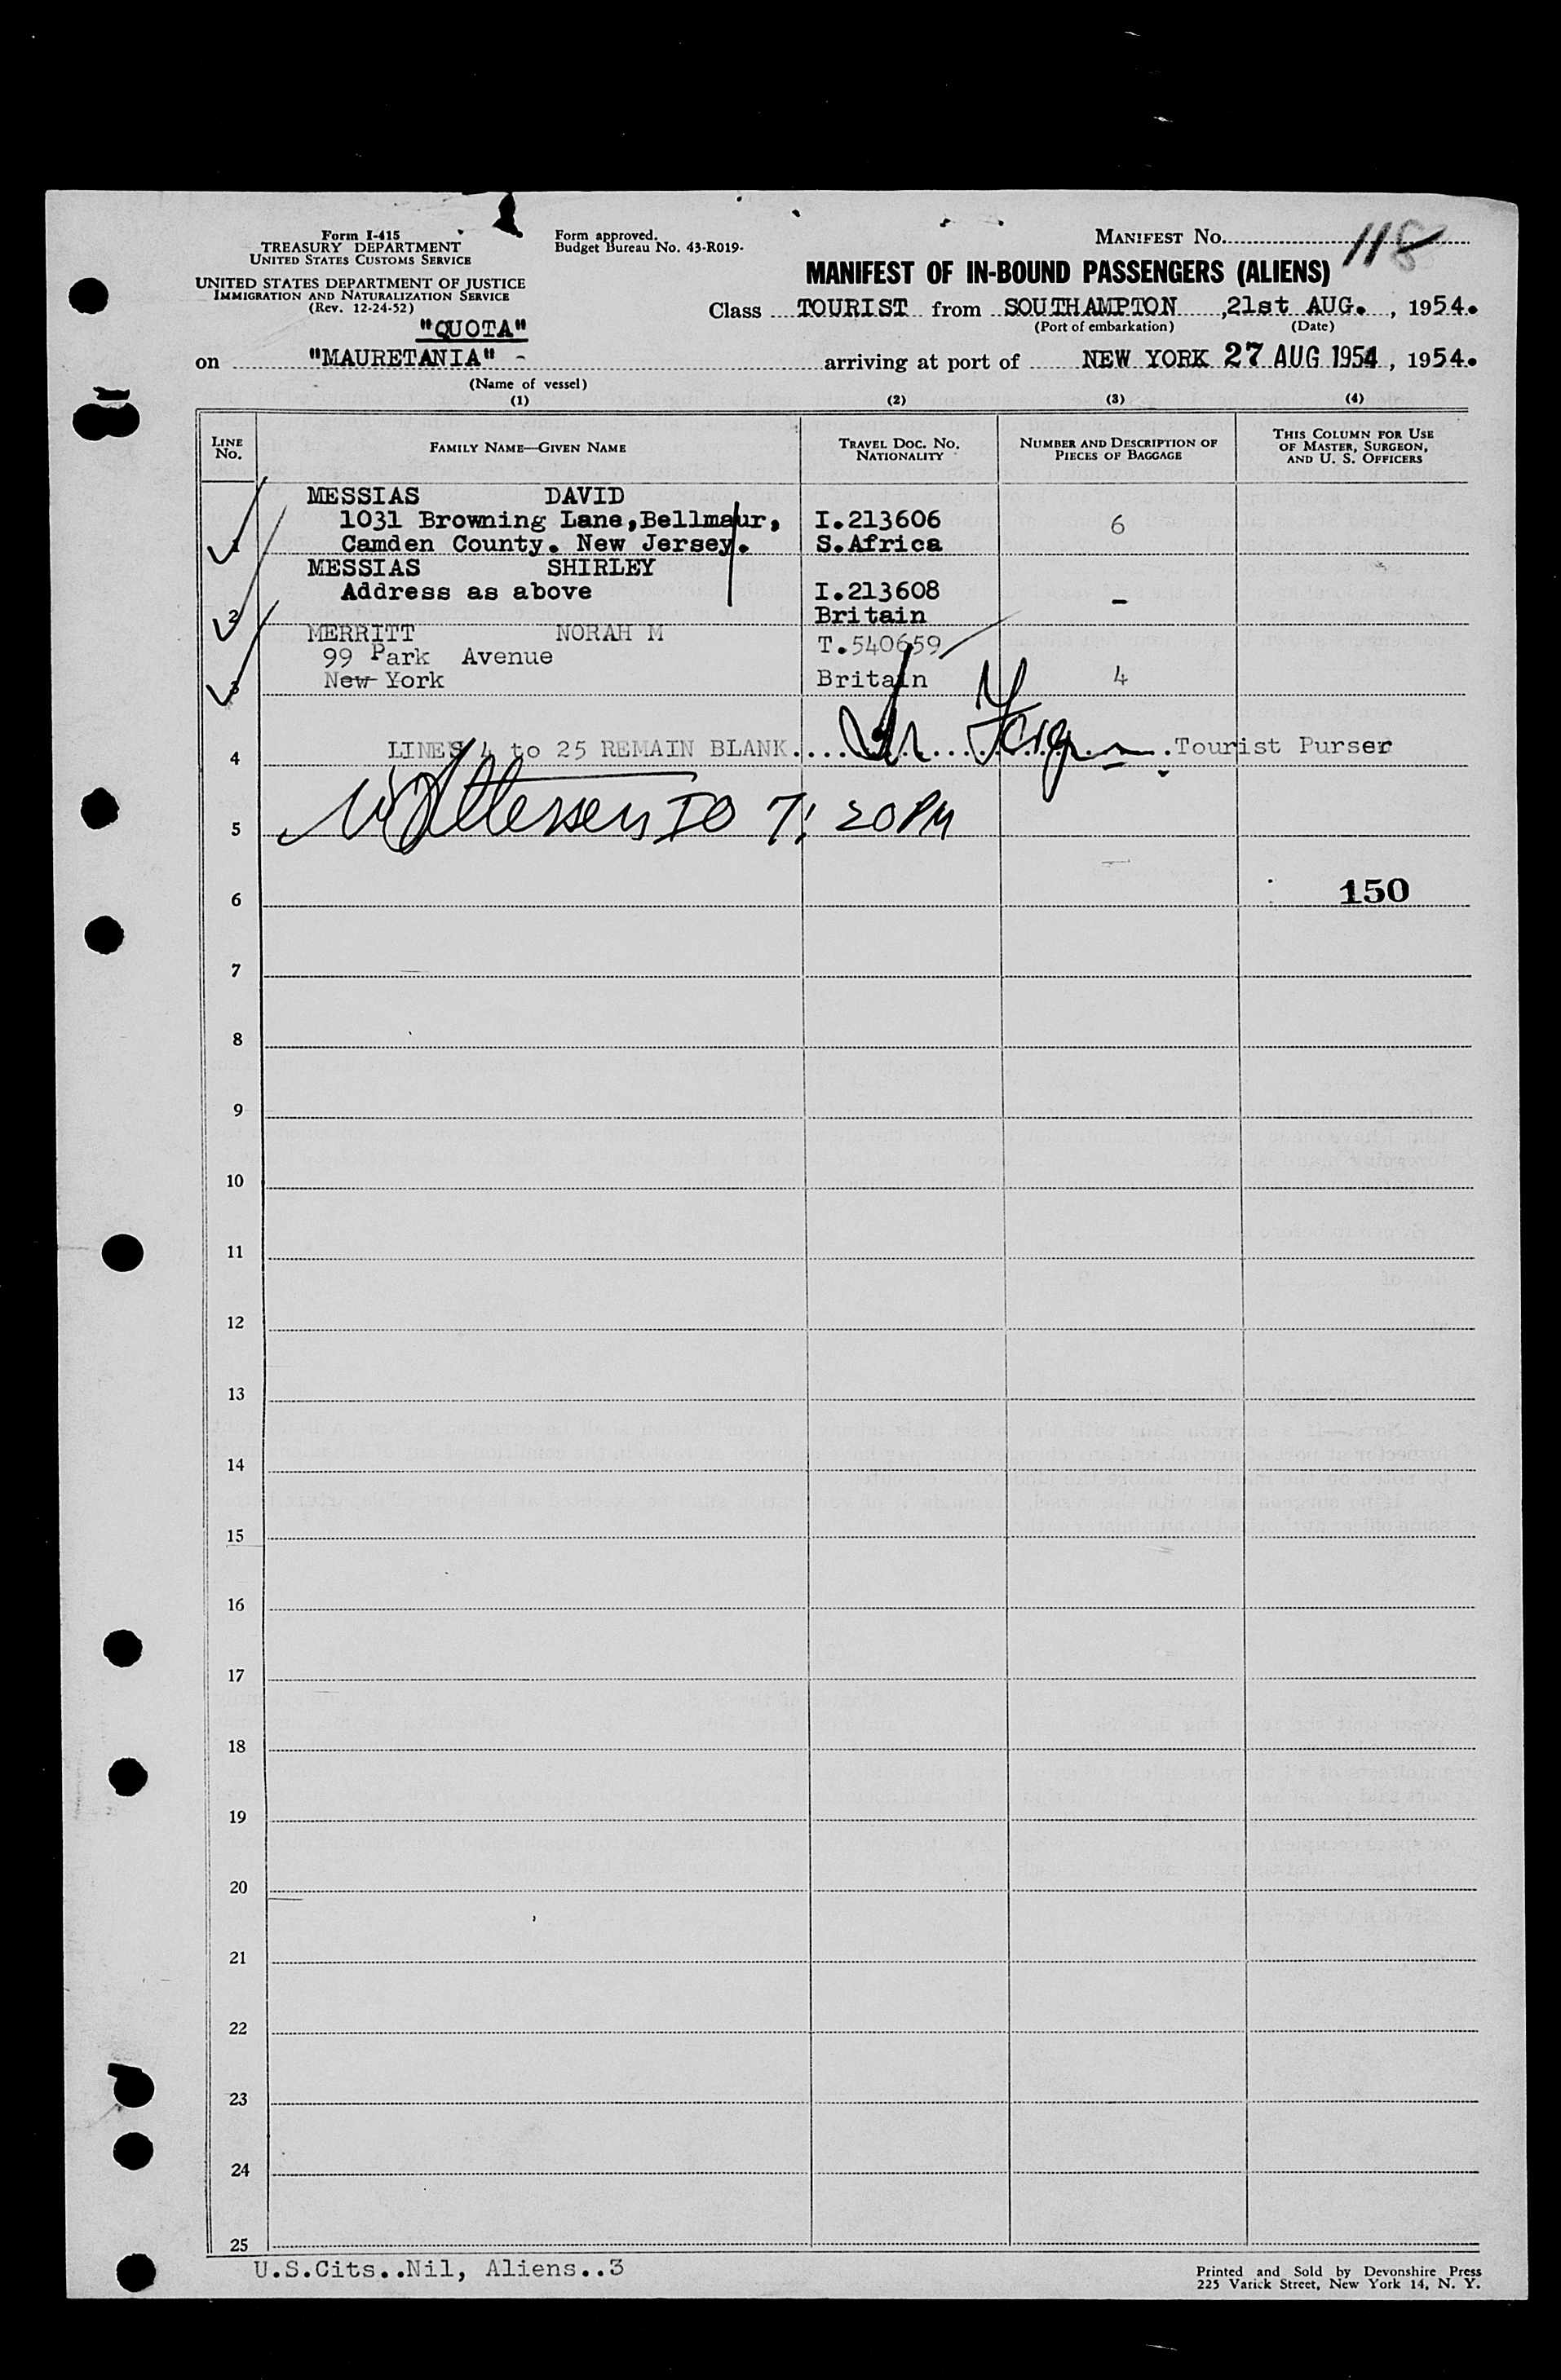 Form I-415
TREASURY DEPARTMENT
UNITED STATES CUSTOMS SERVICE
UNITED STATES DEPARTMENT OF JUSTICE
IMMIGRATION AND NATURALIZATION SERVICE
(Rev. 12-24-52)
Form approved.
Budget Bureau No. 43-R019-
MANIFEST No. 118
MANIFEST OF IN-BOUND PASSENGERS (ALIENS)
Class TOURIST from SOUTHAMPTON ,21st AUG. , 1954.
(Port of embarkation) (Date)
"QUOTA"
on "MAURETANIA" - arriving at port of NEW YORK 27 AUG 1954 , 1954.
(Name of vessel)
(1) (2) (3) (4)
LINE No. FAMILY NAME—GIVEN NAME TRAVEL DOC. NO. NATIONALITY NUMBER AND DESCRIPTION OF PIECES OF BAGGAGE THIS COLUMN FOR USE OF MASTER, SURGEON, AND U. S. OFFICERS
MESSIAS DAVID
1031 Browning Lane,Bellmaur, I.213606 6
1 Camden County. New Jersey. S.Africa
MESSIAS SHIRLEY
Address as above I.213608 -
2 Britain
MERRITT NORAH M T.540659
99 Park Avenue
3 New York Britain 4
4 LINES 4 to 25 REMAIN BLANK. Tourist Purser
5 IO 7:20PM
6 150
7
8
9
10
11
12
13
14
15
16
17
18
19
20
21
22
23
24
25
U.S.Cits..Nil, Aliens..3
Printed and Sold by Devonshire Press
225 Varick Street, New York 14, N. Y.